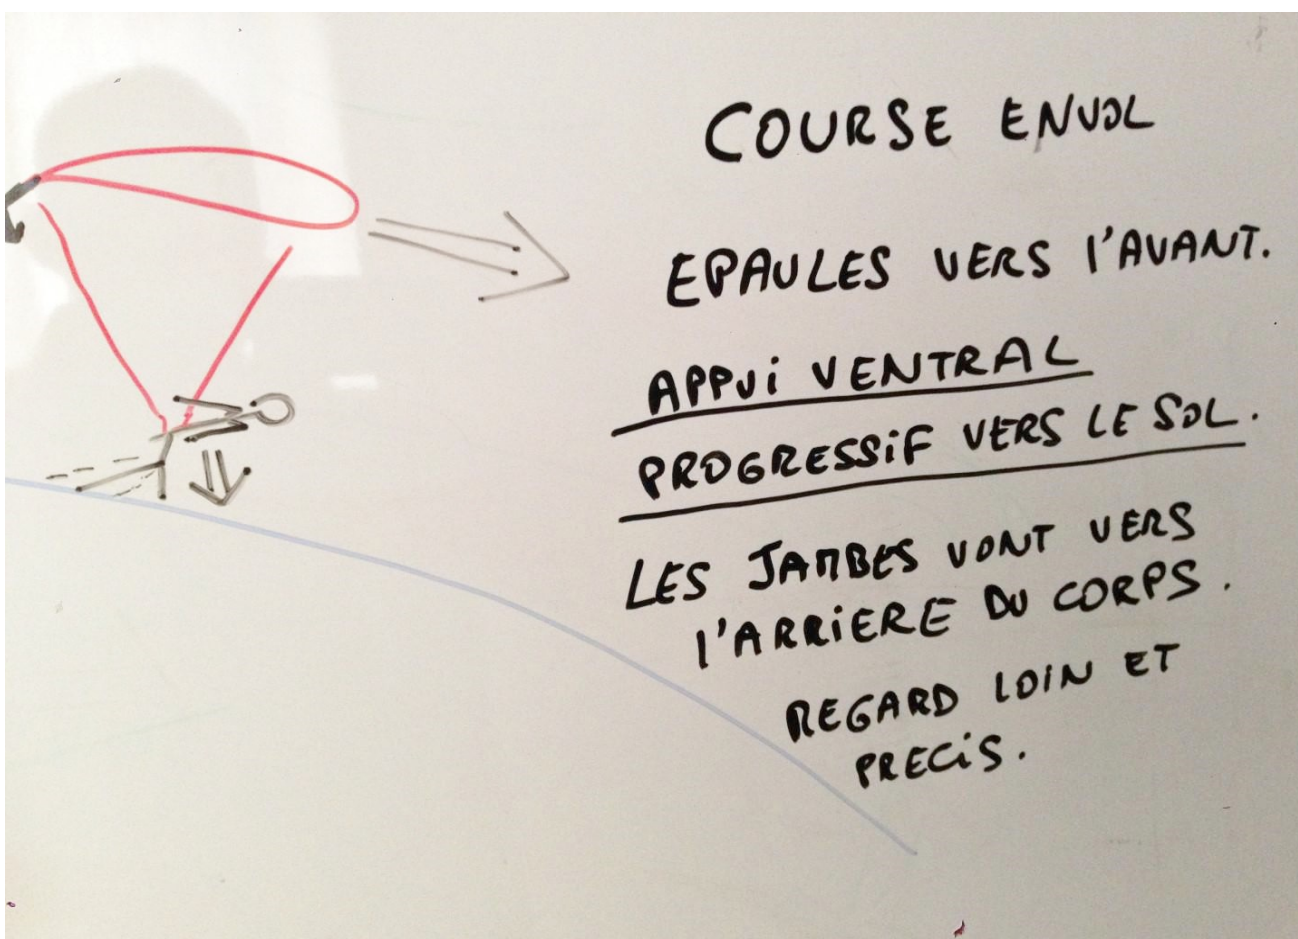 COURSE ENVOL
EPAULES VERS l'AVANT.
APPUi VENTRAL
PROGRESSiF VERS LE SOL.
LES JAMBES VONT VERS
l'ARRiERE DU CORPS.
REGARD LOiN ET
PRECiS.